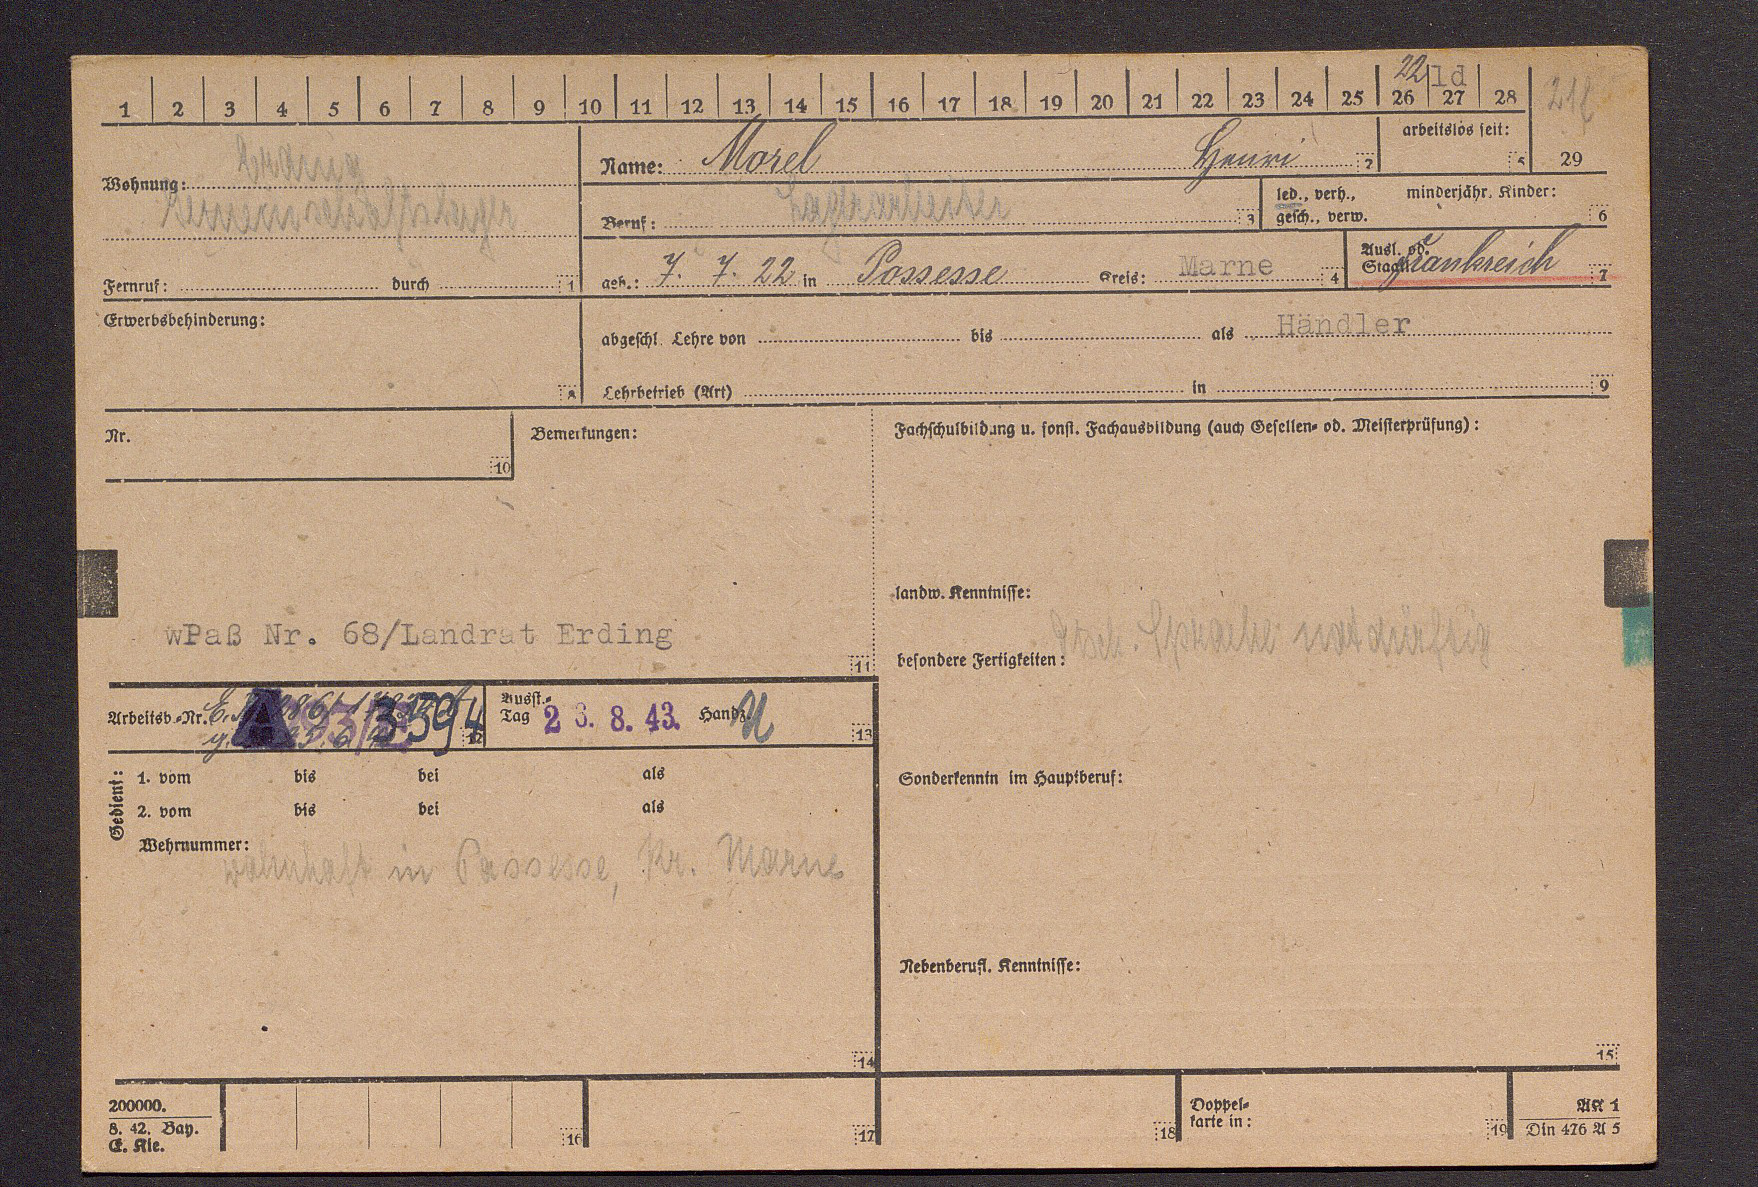 22 1d
1 2 3 4 5 6 7 8 9 10 11 12 13 14 15 16 17 18 19 20 21 22 23 24 25 26 27 28
29
Wohnung: Erding
Gemeinschaftslager
Fernruf: durch 1
Name: Morel Henri 2
arbeitslos seit: 5
Beruf: 3
led., verh., gesch., verw.
minderjähr. Kinder: 6
geb.: 7. 7. 22 in Possesse Kreis: Marne 4
Ausl. od. Staatl. Frankreich 7
Erwerbsbehinderung: 8
abgeschl. Lehre von bis als Händler
Lehrbetrieb (Art) in 9
Nr. 10
Bemerkungen:
wPaß Nr. 68/Landrat Erding 11
Fachschulbildung u. sonst. Fachausbildung (auch Gesellen- od. Meisterprüfung):
landw. Kenntnisse:
dtsch. Sprache notdürftig
besondere Fertigkeiten:
Sonderkenntn im Hauptberuf:
Nebenberufl. Kenntnisse: 15
Arbeitsb.-Nr. A 3594 12
Ausst.-Tag 23. 8. 43. Handz. 13
Gedient: 1. vom bis bei als
2. vom bis bei als
Wehrnummer:
wohnhaft in Possesse, Kr. Marne
14
200000.
8. 42. Bay.
E. Kle.
16 17 18
Doppelkarte in: 19
AK 1
Din 476 A 5